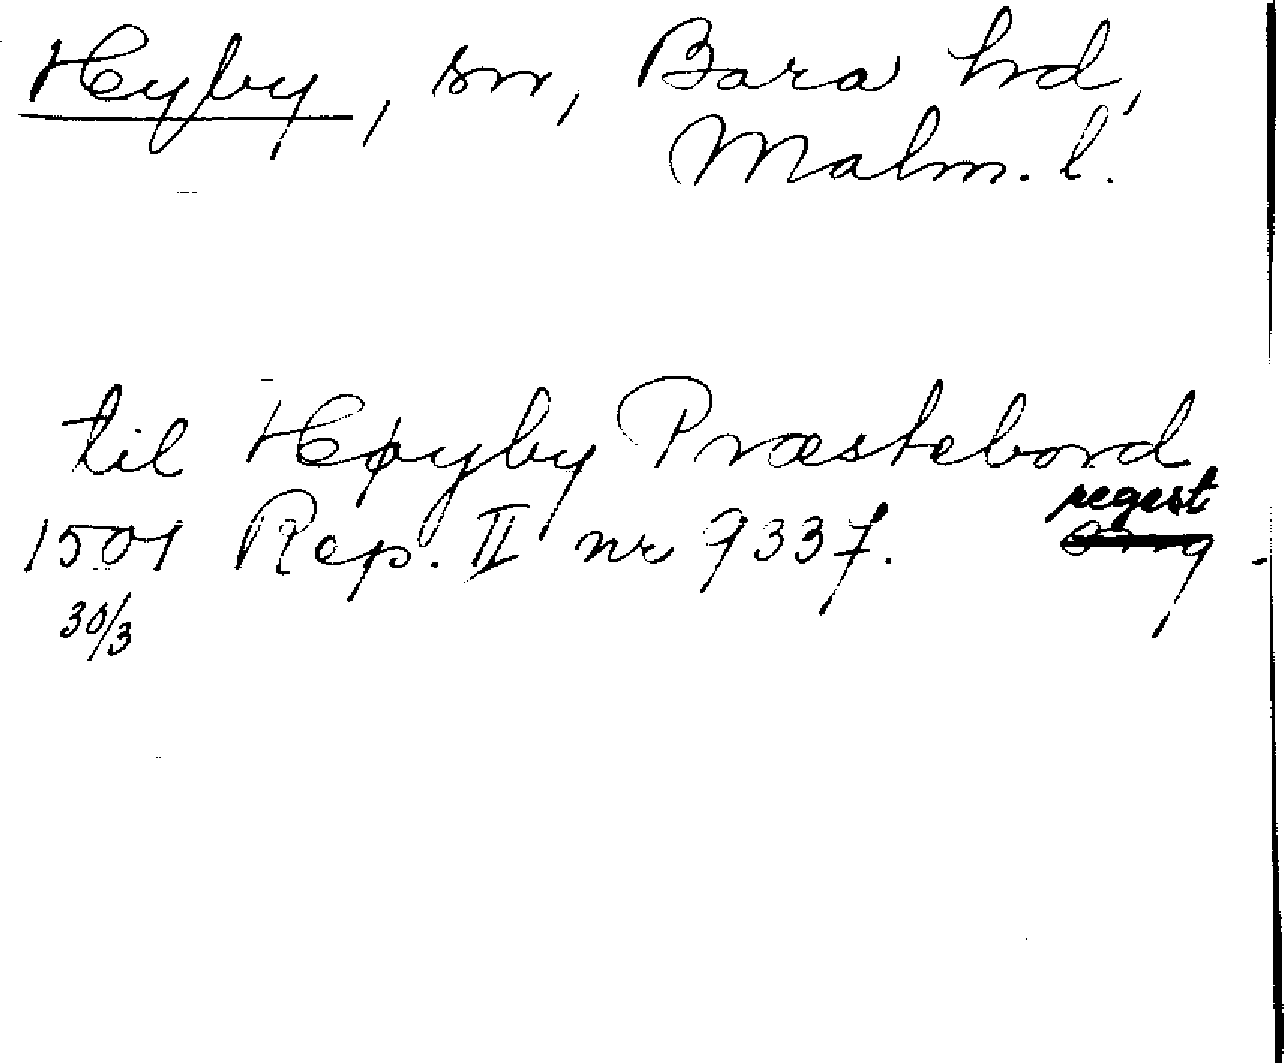 Hyby, sn, Bara hd,
Malm. l.
til Høyby Præstebord
1501 Rep. II nr 9337. regest
30/3